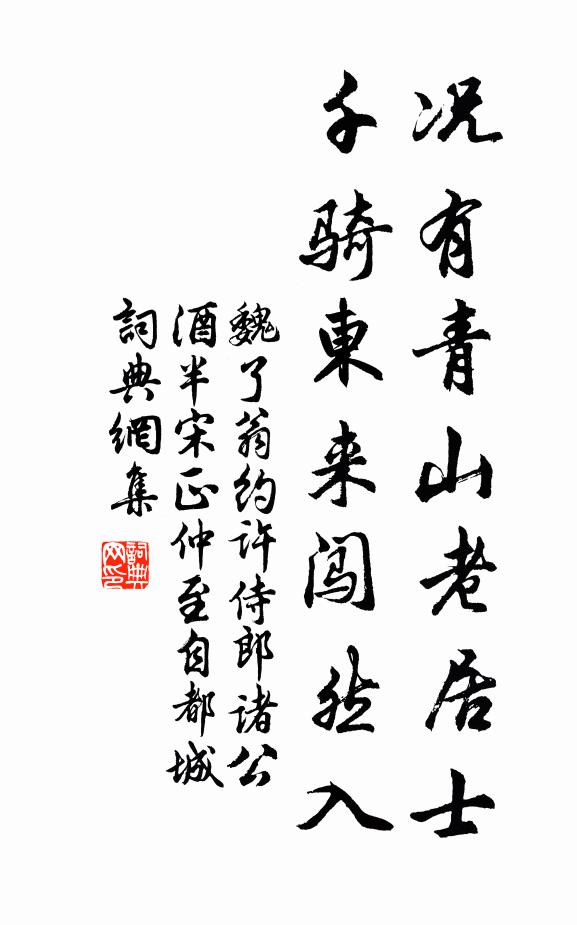 况有青山老居士
千骑東来闯然入
魏了翁约许侍郎諸公
酒半宋正仲至自都城
詞典網集
詞典网印